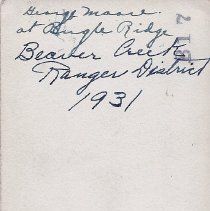 George Moore
at Bugle Ridge
Beaver Creek
Ranger District
1931